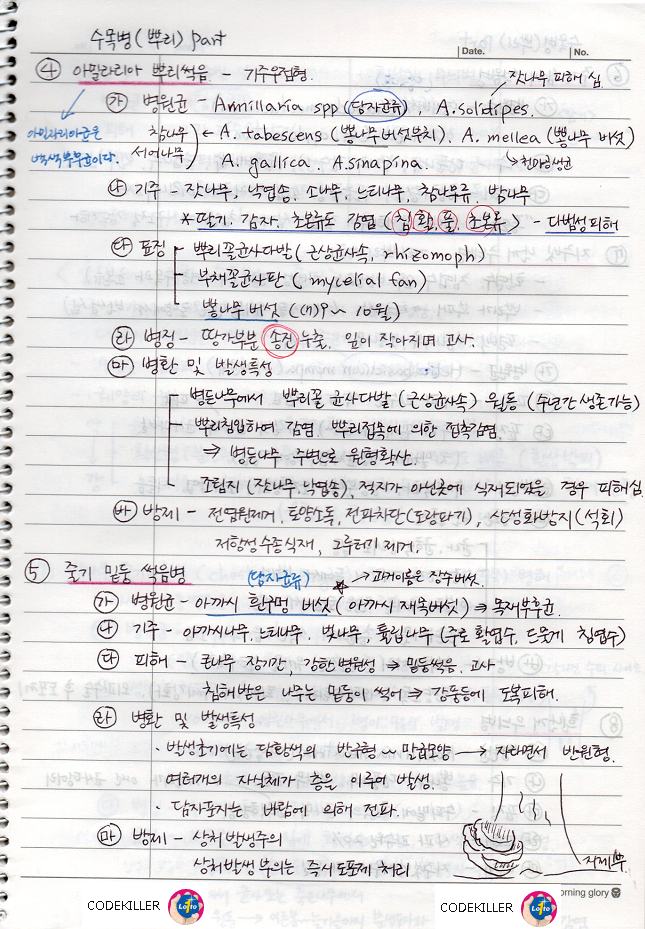 수목병(뿌리) part
Date. No.
④ 아밀라리아 뿌리썩음 - 기주우점형.
잣나무 피해 심.
㉮ 병원균 - Armillaria spp (담자균류), A. solidipes.
아밀라리아균은
백색부후균이다.
참나무
서어나무
← A. tabescens (뽕나무버섯부치). A. mellea (뽕나무 버섯)
A. gallica. A. sinapina.
↳ 천마공생균
㉯ 기주 - 잣나무, 낙엽송, 소나무, 느티나무, 참나무류, 밤나무
* 딸기. 감자. 초본류도 감염 (침, 활, 풀, 초본류) - 다범성피해
㉰ 표징 - 뿌리꼴균사다발 (근상균사속, rhizomorph)
- 부채꼴균사판 (mycelial fan)
- 뽕나무 버섯 ( ~ 10월)
㉱ 병징 - 땅가부분 송진 누출. 잎이 작아지며 고사.
㉲ 병환 및 발생특성
- 병든나무에서 뿌리꼴 균사다발 (근상균사속) 월동 (수년간 생존가능)
- 뿌리침입하여 감염. 뿌리접목에 의한 접촉감염.
⇒ 병든나무 주변으로 원형확산.
- 조림지 (잣나무, 낙엽송), 적지가 아닌곳에 식재되었을 경우 피해심.
㉳ 방제 - 전염원제거, 토양소독, 전파차단(도랑파기), 산성화방지(석회)
저항성수종식재, 그루터기 제거.
⑤ 줄기 밑동 썩음병
(담자균류)
☆ → 파커이용은 장수버섯.
㉮ 병원균 - 아까시 흰구멍 버섯 (아까시 재목버섯) ⇒ 목재부후균.
㉯ 기주 - 아까시나무, 느티나무. 벚나무, 튤립나무 (주로 활엽수, 드물게 침엽수)
㉰ 피해 - 큰나무 장기간, 강한 병원성 ⇒ 밑동썩음. 고사
침해받은 나무는 밑동이 썩어 ⇒ 강풍등에 도복피해.
㉱ 병환 및 발생특성
· 발생초기에는 담황색의 반구형 ~ 말굽모양 → 자라면서 반원형.
여러개의 자실체가 층을 이루어 발생.
· 담자포자는 바람에 의해 전파.
㉲ 방제 - 상처발생주의
상처발생 부위는 즉시 도포제 처리
지제부.
morning glory
CODEKILLER Lotto
CODEKILLER Lotto